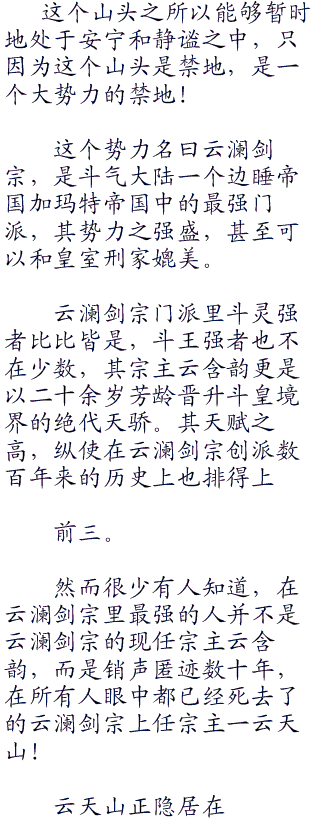 这个山头之所以能够暂时
地处于安宁和静谧之中，只
因为这个山头是禁地，是一
个大势力的禁地！
这个势力名曰云澜剑
宗，是斗气大陆一个边睡帝
国加玛特帝国中的最强门
派，其势力之强盛，甚至可
以和皇室刑家媲美。
云澜剑宗门派里斗灵强
者比比皆是，斗王强者也不
在少数，其宗主云含韵更是
以二十余岁芳龄晋升斗皇境
界的绝代天骄。其天赋之
高，纵使在云澜剑宗创派数
百年来的历史上也排得上
前三。
然而很少有人知道，在
云澜剑宗里最强的人并不是
云澜剑宗的现任宗主云含
韵，而是销声匿迹数十年，
在所有人眼中都已经死去了
的云澜剑宗上任宗主一云天
山！
云天山正隐居在